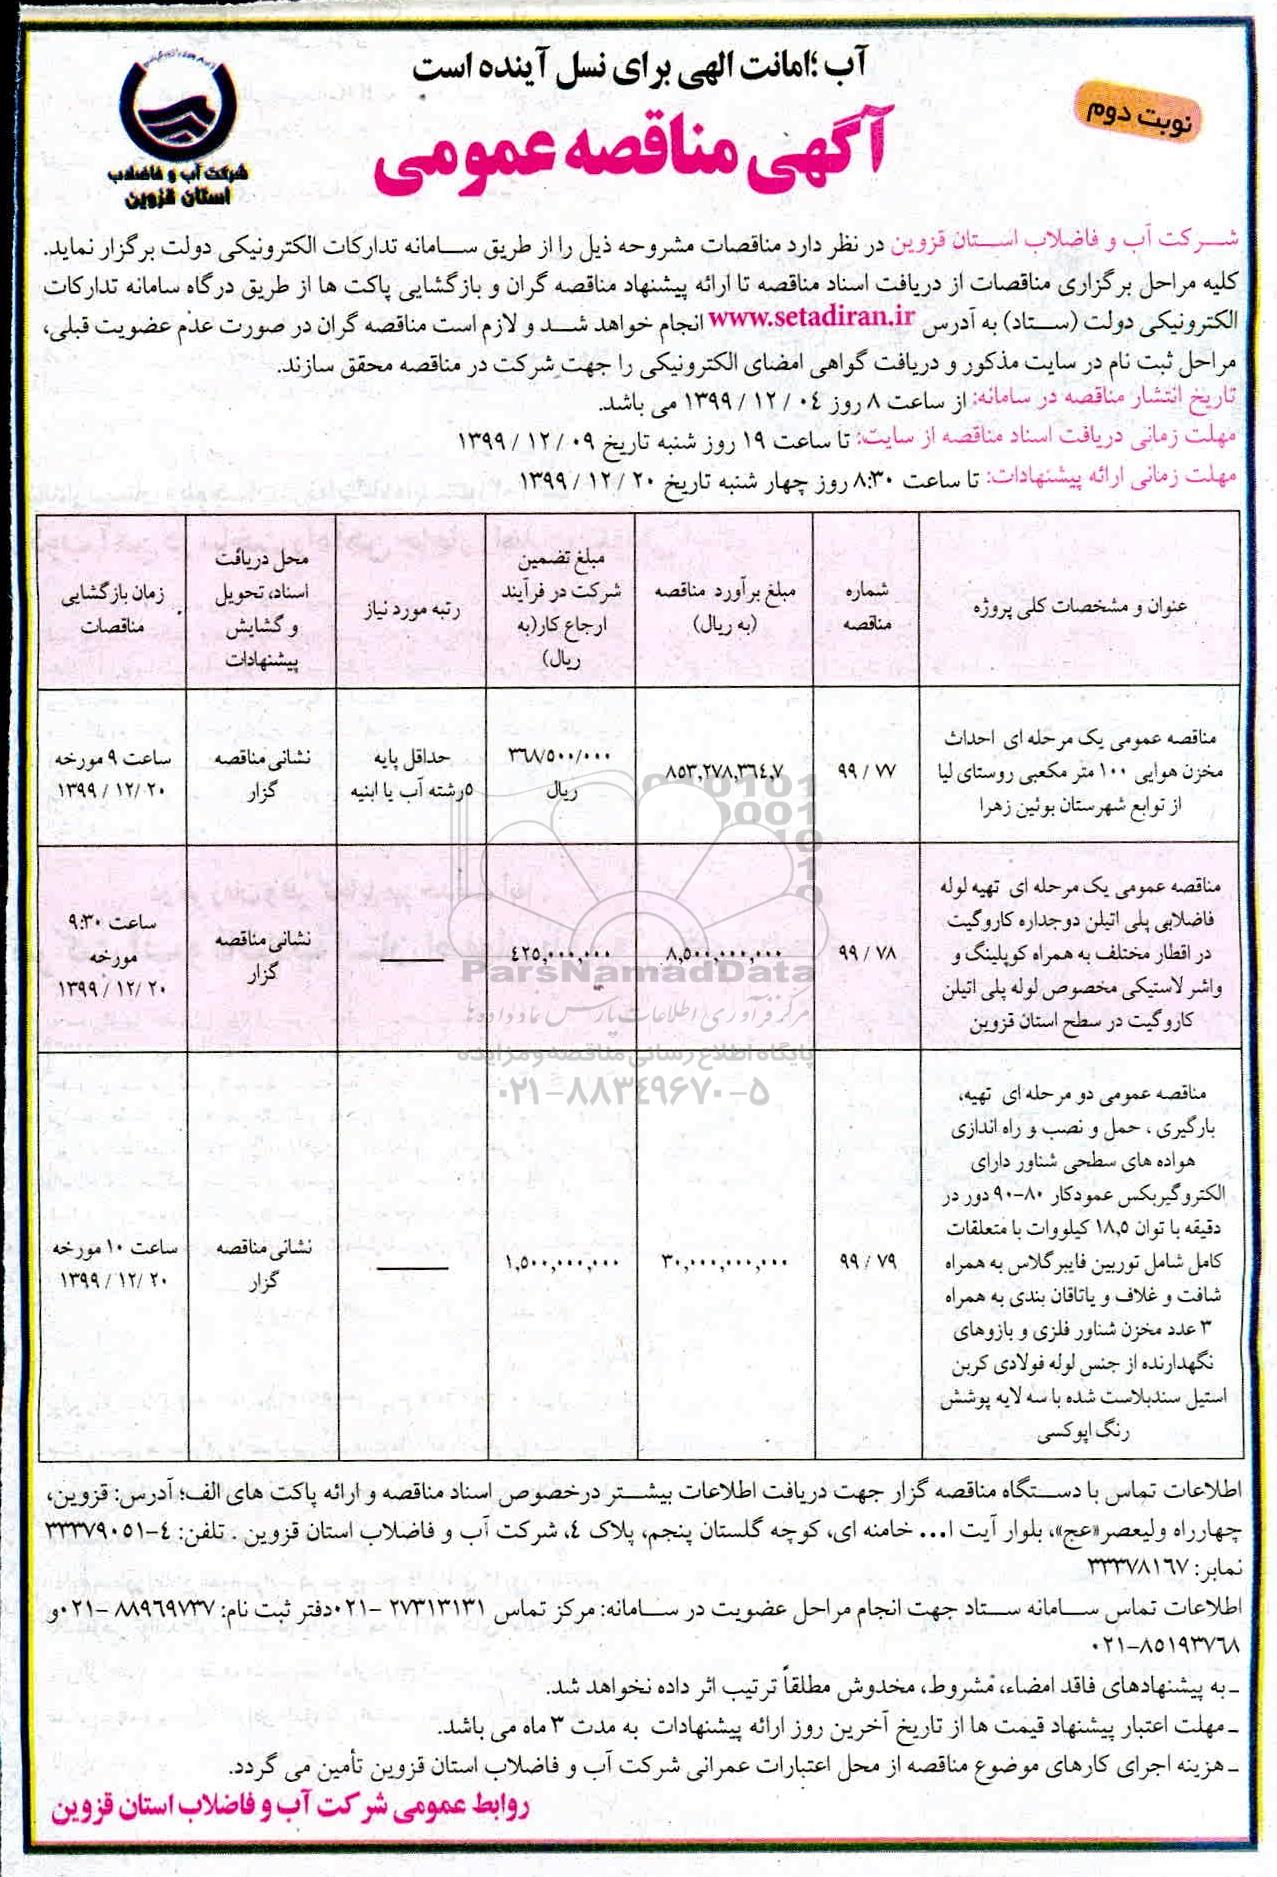 آب ؛امانت الهی برای نسل آینده است
نوبت دوم
آگهی مناقصه عمومی
شرکت آب و فاضلاب
استان قزوین
شرکت آب و فاضلاب استان قزوین در نظر دارد مناقصات مشروحه ذیل را از طریق سامانه تدارکات الکترونیکی دولت برگزار نماید.
کلیه مراحل برگزاری مناقصات از دریافت اسناد مناقصه تا ارائه پیشنهاد مناقصه گران و بازگشایی پاکت ها از طریق درگاه سامانه تدارکات
الکترونیکی دولت (ستاد) به آدرس www.setadiran.ir انجام خواهد شد و لازم است مناقصه گران در صورت عدم عضویت قبلی،
مراحل ثبت نام در سایت مذکور و دریافت گواهی امضای الکترونیکی را جهت شرکت در مناقصه محقق سازند.
تاریخ انتشار مناقصه در سامانه: از ساعت ۸ روز ۰۴ / ۱۲ / ۱۳۹۹ می باشد.
مهلت زمانی دریافت اسناد مناقصه از سایت: تا ساعت ۱۹ روز شنبه تاریخ ۰۹ / ۱۲ / ۱۳۹۹
مهلت زمانی ارائه پیشنهادات: تا ساعت ۸:۳۰ روز چهار شنبه تاریخ ۲۰ / ۱۲ / ۱۳۹۹
عنوان و مشخصات کلی پروژه
شماره
مناقصه
مبلغ برآورد مناقصه
(به ریال)
مبلغ تضمین
شرکت در فرآیند
ارجاع کار(به
ریال)
رتبه مورد نیاز
محل دریافت
اسناد، تحویل
و گشایش
پیشنهادات
زمان بازگشایی
مناقصات
مناقصه عمومی یک مرحله ای احداث
مخزن هوایی ۱۰۰ متر مکعبی روستای لیا
از توابع شهرستان بوئین زهرا
۹۹ / ۷۷
۸۵۳,۲۷۸,۳۶۴,۷
۳۶۸/۵۰۰/۰۰۰
ریال
حداقل پایه
۵رشته آب یا ابنیه
نشانی مناقصه
گزار
ساعت ۹ مورخه
۲۰ /۱۲ / ۱۳۹۹
مناقصه عمومی یک مرحله ای تهیه لوله
فاضلابی پلی اتیلن دوجداره کاروگیت
در اقطار مختلف به همراه کوپلینگ و
واشر لاستیکی مخصوص لوله پلی اتیلن
کاروگیت در سطح استان قزوین
۹۹ / ۷۸
۸,۵۰۰,۰۰۰,۰۰۰
۴۲۵,۰۰۰,۰۰۰
نشانی مناقصه
گزار
ساعت ۹:۳۰
مورخه
۲۰ /۱۲ / ۱۳۹۹
مناقصه عمومی دو مرحله ای تهیه،
بارگیری ، حمل و نصب و راه اندازی
هواده های سطحی شناور دارای
الکتروگیربکس عمودکار ۸۰-۹۰ دور در
دقیقه با توان ۱۸,۵ کیلووات با متعلقات
کامل شامل توربین فایبرگلاس به همراه
شافت و غلاف و یاتاقان بندی به همراه
۳ عدد مخزن شناور فلزی و بازوهای
نگهدارنده از جنس لوله فولادی کربن
استیل سندبلاست شده با سه لایه پوشش
رنگ اپوکسی
۹۹ / ۷۹
۳۰,۰۰۰,۰۰۰,۰۰۰
۱,۵۰۰,۰۰۰,۰۰۰
نشانی مناقصه
گزار
ساعت ۱۰ مورخه
۲۰ /۱۲ / ۱۳۹۹
ParsNamadData
مرکز فرآوری اطلاعات پارس نماد داده ها
پایگاه اطلاع رسانی مناقصه و مزایده
۰۲۱-۸۸۳۴۹۶۷۰-۵
اطلاعات تماس با دستگاه مناقصه گزار جهت دریافت اطلاعات بیشتر درخصوص اسناد مناقصه و ارائه پاکت های الف؛ آدرس: قزوین،
چهارراه ولیعصر«عج»، بلوار آیت ا... خامنه ای، کوچه گلستان پنجم، پلاک ۴، شرکت آب و فاضلاب استان قزوین . تلفن: ۴-۳۳۳۷۹۰۵۱
نمابر: ۳۳۳۷۸۱۶۷
اطلاعات تماس سامانه ستاد جهت انجام مراحل عضویت در سامانه: مرکز تماس ۲۷۳۱۳۱۳۱ -۰۲۱دفتر ثبت نام: ۸۸۹۶۹۷۳۷ -۰۲۱و
۸۵۱۹۳۷۶۸-۰۲۱
ـ به پیشنهادهای فاقد امضاء، مشروط، مخدوش مطلقاً ترتیب اثر داده نخواهد شد.
ـ مهلت اعتبار پیشنهاد قیمت ها از تاریخ آخرین روز ارائه پیشنهادات به مدت ۳ ماه می باشد.
ـ هزینه اجرای کارهای موضوع مناقصه از محل اعتبارات عمرانی شرکت آب و فاضلاب استان قزوین تأمین می گردد.
روابط عمومی شرکت آب و فاضلاب استان قزوین